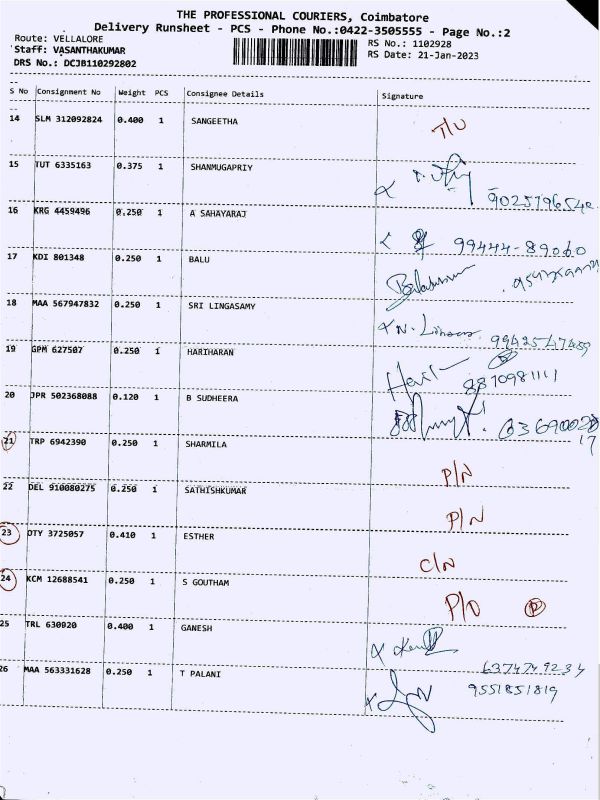 THE PROFESSIONAL COURIERS, Coimbatore
Delivery Runsheet - PCS - Phone No.:0422-3505555 - Page No.:2
Route: VELLALORE RS No.: 1102928
Staff: VASANTHAKUMAR RS Date: 21-Jan-2023
DRS No.: DCJB110292802
S No Consignment No Weight PCS Consignee Details Signature
14 SLM 312092824 0.400 1 SANGEETHA
T/U
15 TUT 6335163 0.375 1 SHANMUGAPRIY
16 KRG 4459496 0.250 1 A SAHAYARAJ
99444-89060
17 KDI 801348 0.250 1 BALU
18 MAA 567947832 0.250 1 SRI LINGASAMY
9942547489
19 GPM 627507 0.250 1 HARIHARAN
8870981111
20 JPR 502368088 0.120 1 B SUDHEERA
21 TRP 6942390 0.250 1 SHARMILA
P/N
22 DEL 910080275 0.250 1 SATHISHKUMAR
P/N
23 OTY 3725057 0.410 1 ESTHER
C/N
24 KCM 12688541 0.250 1 S GOUTHAM
P/D P
25 TRL 630920 0.400 1 GANESH
6374749234
26 MAA 563331628 0.250 1 T PALANI
9551851819